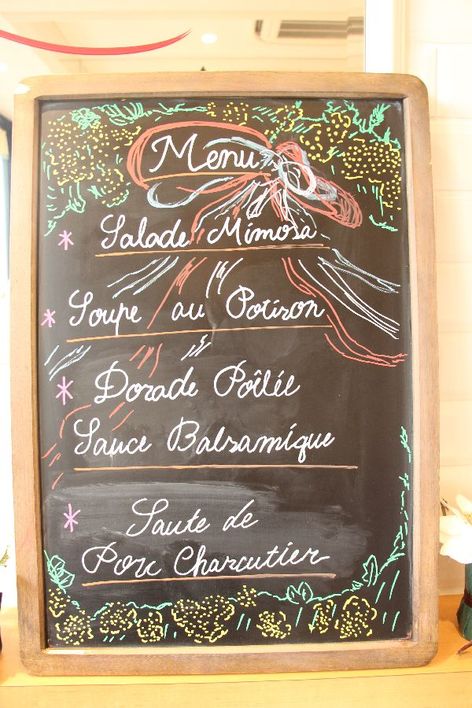 Menu
* Salade Mimosa
* Soupe au Potiron
* Dorade Poîlée
Sauce Balsamique
* Saute de
Porc Charcutier